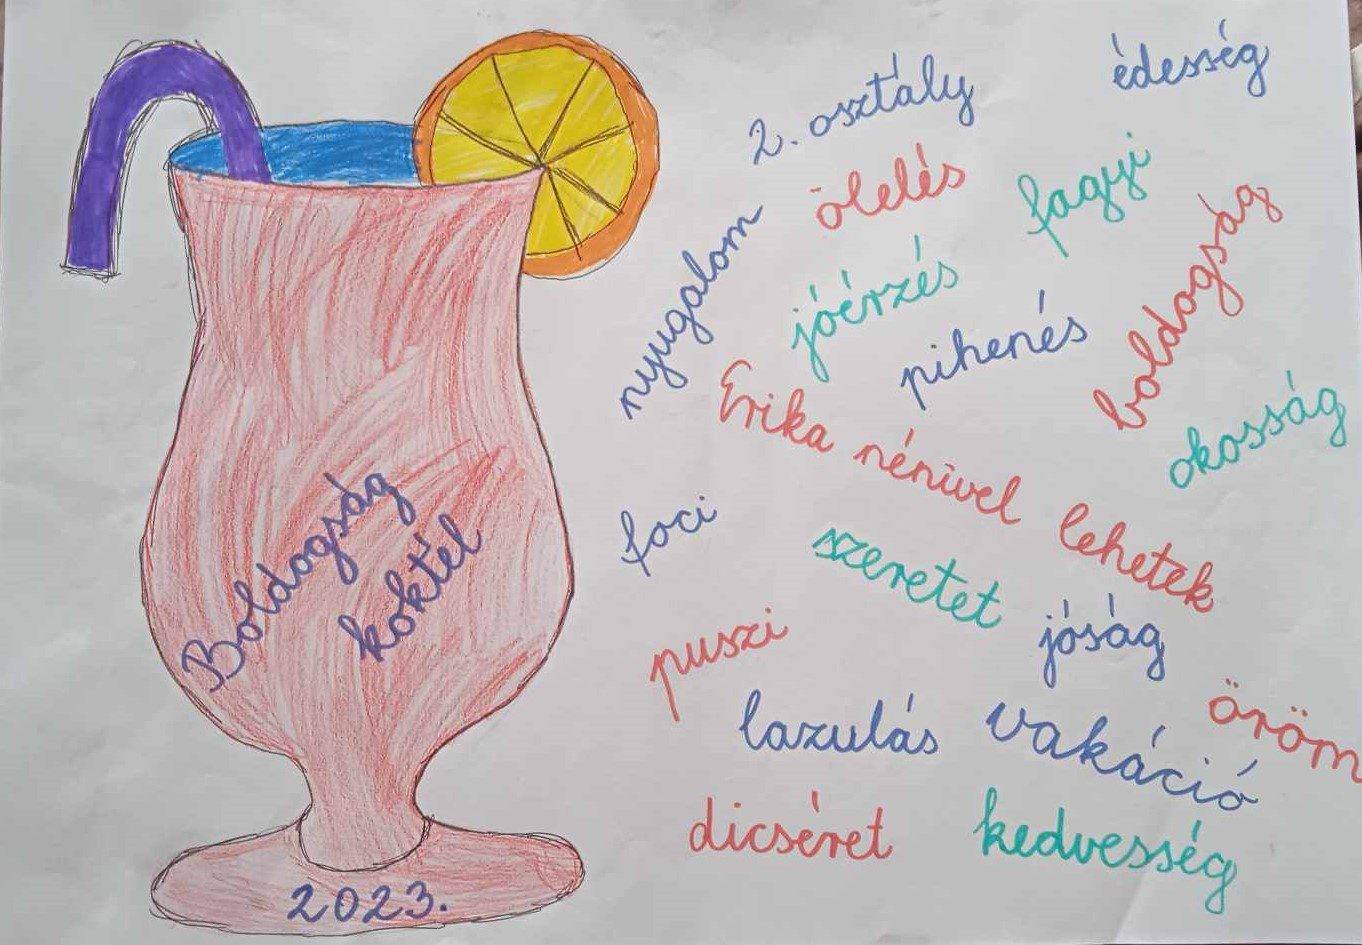 2. osztály
édesség
ölelés
fagyi
nyugalom
jóérzés
pihenés
boldogság
Erika nénivel lehetek
okosság
foci
szeretet
jóság
puszi
lazulás
vakáció
öröm
dicséret
kedvesség
Boldogság
koktél
2023.